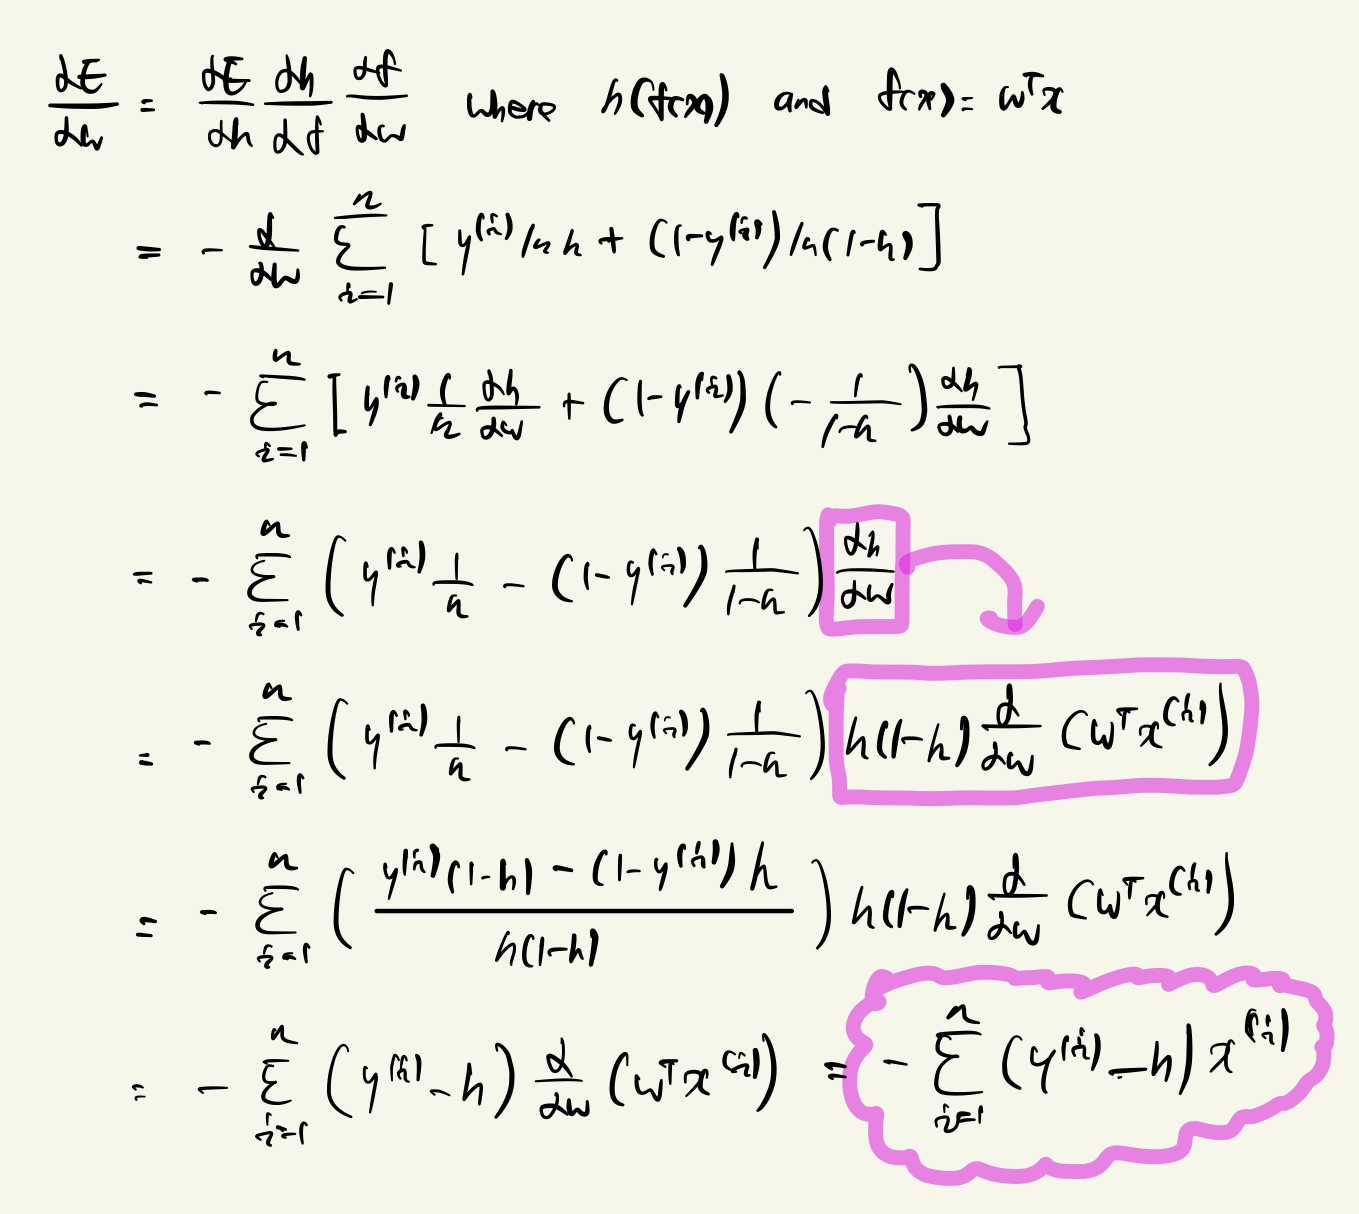 dE/dw = dE/dh dh/df df/dw where h(f(x)) and f(x) = wᵀx
= - d/dw Σ_{i=1}^{n} [ y^{(i)} ln h + (1-y^{(i)}) ln(1-h) ]
= - Σ_{i=1}^{n} [ y^{(i)} 1/h dh/dw + (1-y^{(i)}) (- 1/(1-h)) dh/dw ]
= - Σ_{i=1}^{n} ( y^{(i)} 1/h - (1-y^{(i)}) 1/(1-h) ) dh/dw
= - Σ_{i=1}^{n} ( y^{(i)} 1/h - (1-y^{(i)}) 1/(1-h) ) h(1-h) d/dw (wᵀx^{(i)})
= - Σ_{i=1}^{n} ( (y^{(i)}(1-h) - (1-y^{(i)})h) / (h(1-h)) ) h(1-h) d/dw (wᵀx^{(i)})
= - Σ_{i=1}^{n} (y^{(i)} - h) d/dw (wᵀx^{(i)}) = - Σ_{i=1}^{n} (y^{(i)} - h) x^{(i)}